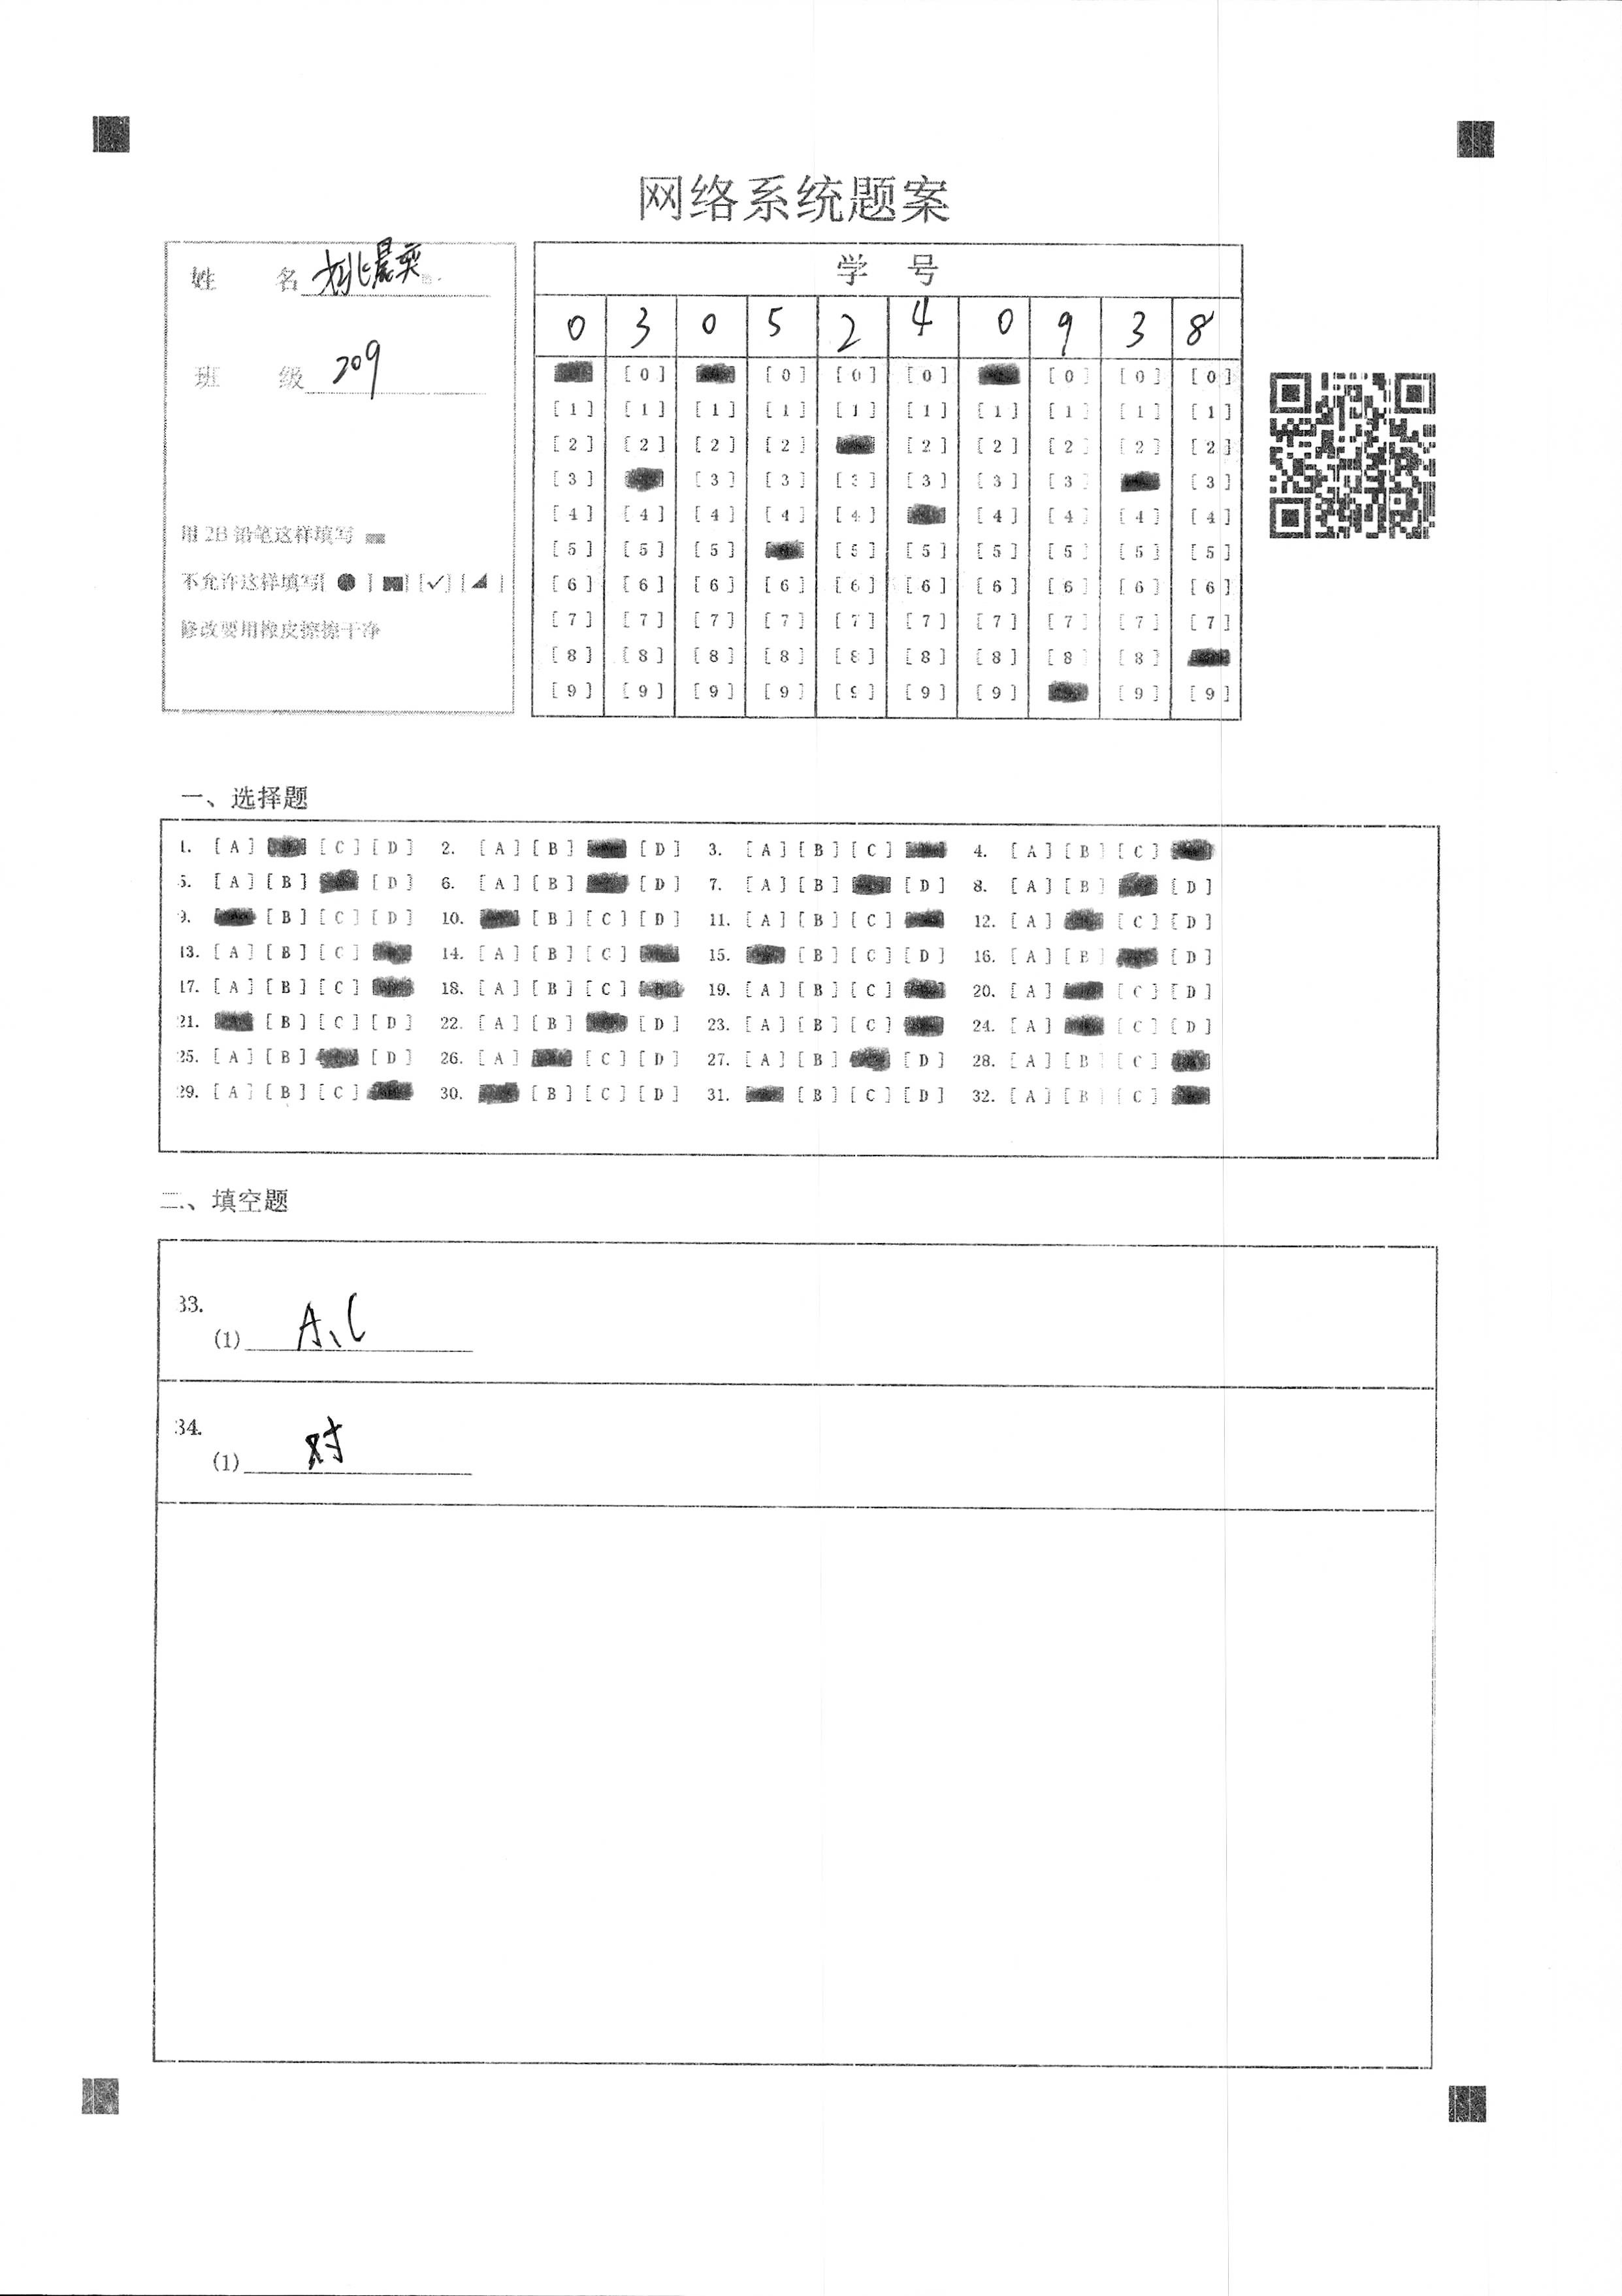 网络系统题案
姓 名
班 级 209
用2B铅笔这样填写
不允许这样填写[●][■][✓][◢]
修改要用橡皮擦擦干净
学 号
0 3 0 5 2 4 0 9 3 8
[0] [0] [0] [0] [0] [0] [0]
[1] [1] [1] [1] [1] [1] [1] [1] [1] [1]
[2] [2] [2] [2] [2] [2] [2] [2] [2]
[3] [3] [3] [3] [3] [3] [3] [3]
[4] [4] [4] [4] [4] [4] [4] [4] [4]
[5] [5] [5] [5] [5] [5] [5] [5] [5]
[6] [6] [6] [6] [6] [6] [6] [6] [6] [6]
[7] [7] [7] [7] [7] [7] [7] [7] [7] [7]
[8] [8] [8] [8] [8] [8] [8] [8] [8]
[9] [9] [9] [9] [9] [9] [9] [9] [9]
一、选择题
1. [A] [C] [D] 2. [A] [B] [D] 3. [A] [B] [C] 4. [A] [B] [C]
5. [A] [B] [D] 6. [A] [B] [D] 7. [A] [B] [D] 8. [A] [B] [D]
9. [B] [C] [D] 10. [B] [C] [D] 11. [A] [B] [C] 12. [A] [C] [D]
13. [A] [B] [C] 14. [A] [B] [C] 15. [B] [C] [D] 16. [A] [B] [D]
17. [A] [B] [C] 18. [A] [B] [C] 19. [A] [B] [C] 20. [A] [C] [D]
21. [B] [C] [D] 22. [A] [B] [D] 23. [A] [B] [C] 24. [A] [C] [D]
25. [A] [B] [D] 26. [A] [C] [D] 27. [A] [B] [D] 28. [A] [B] [C]
29. [A] [B] [C] 30. [B] [C] [D] 31. [B] [C] [D] 32. [A] [B] [C]
二、填空题
33.
(1) A、C
34.
(1) 对